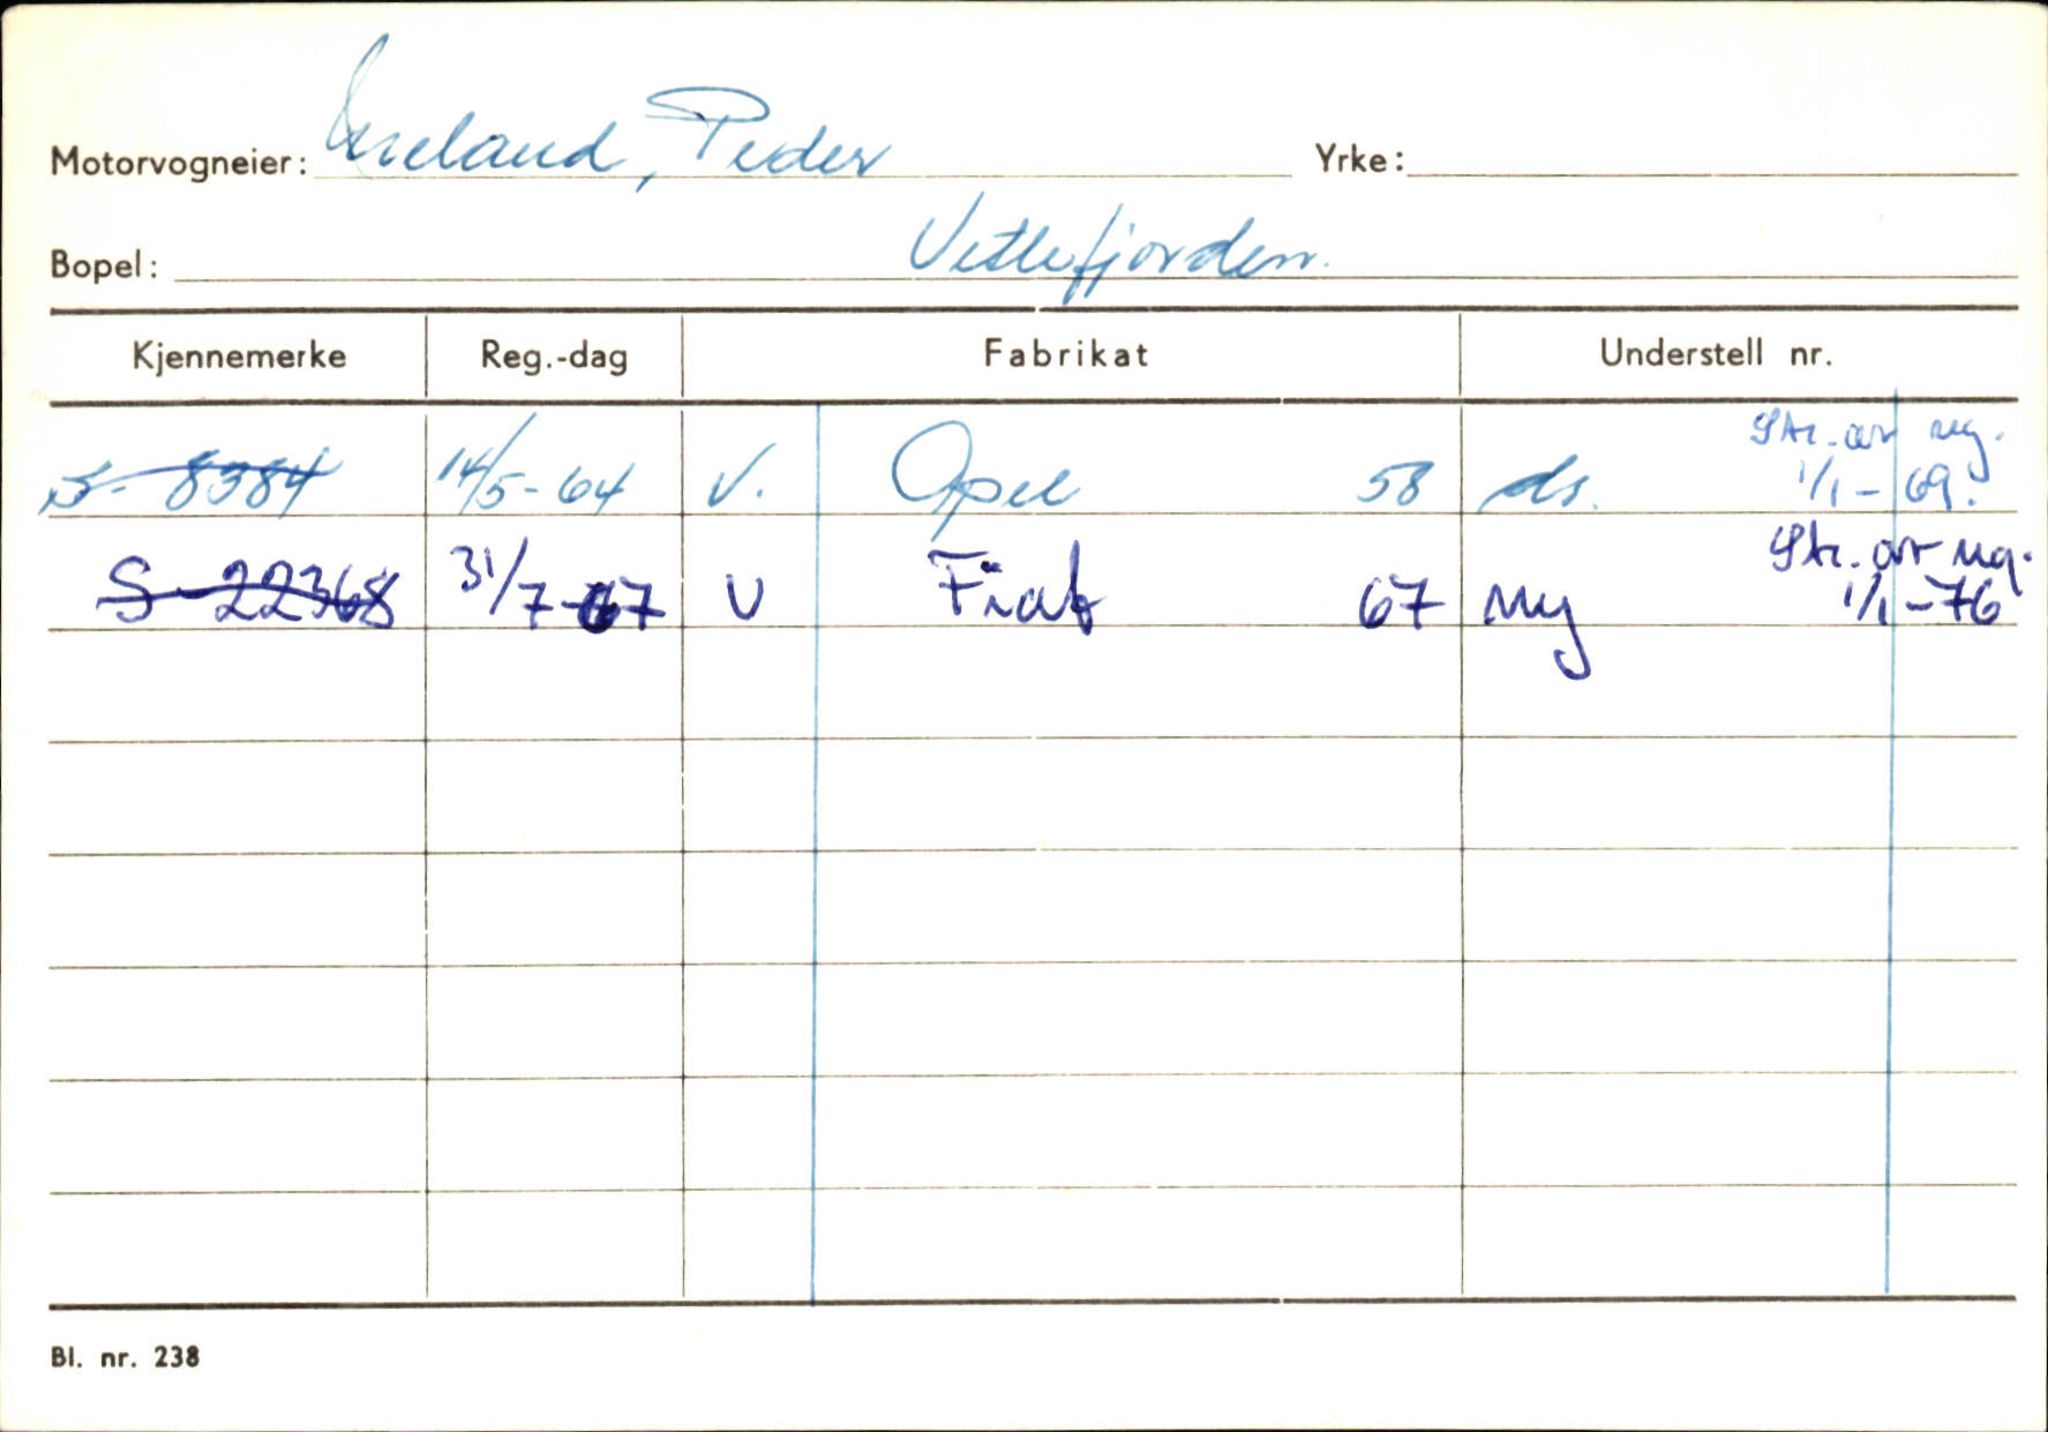 Motorvogneier: Mreland, Peder Yrke:
Bopel: Vetlefjorden.
Kjennemerke Reg.-dag Fabrikat Understell nr.
S- 8384 14/5-64 V. Opel 58 ds. Str. av reg. 1/1-69.
S-22368 31/7-67 V Fiat 67 ny Str. av reg. 1/1-76
Bl. nr. 238